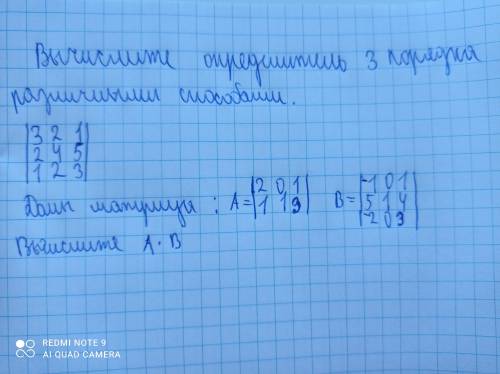 Вычислите определитель 3 порядка
различными способами.
|3 2 1|
|2 4 5|
|1 2 3|
Даны матрицы : A=|2 0 1| B=|-1 0 1|
|1 1 3| |5 1 4|
|-2 0 3|
Вычислите A · B
REDMI NOTE 9
AI QUAD CAMERA